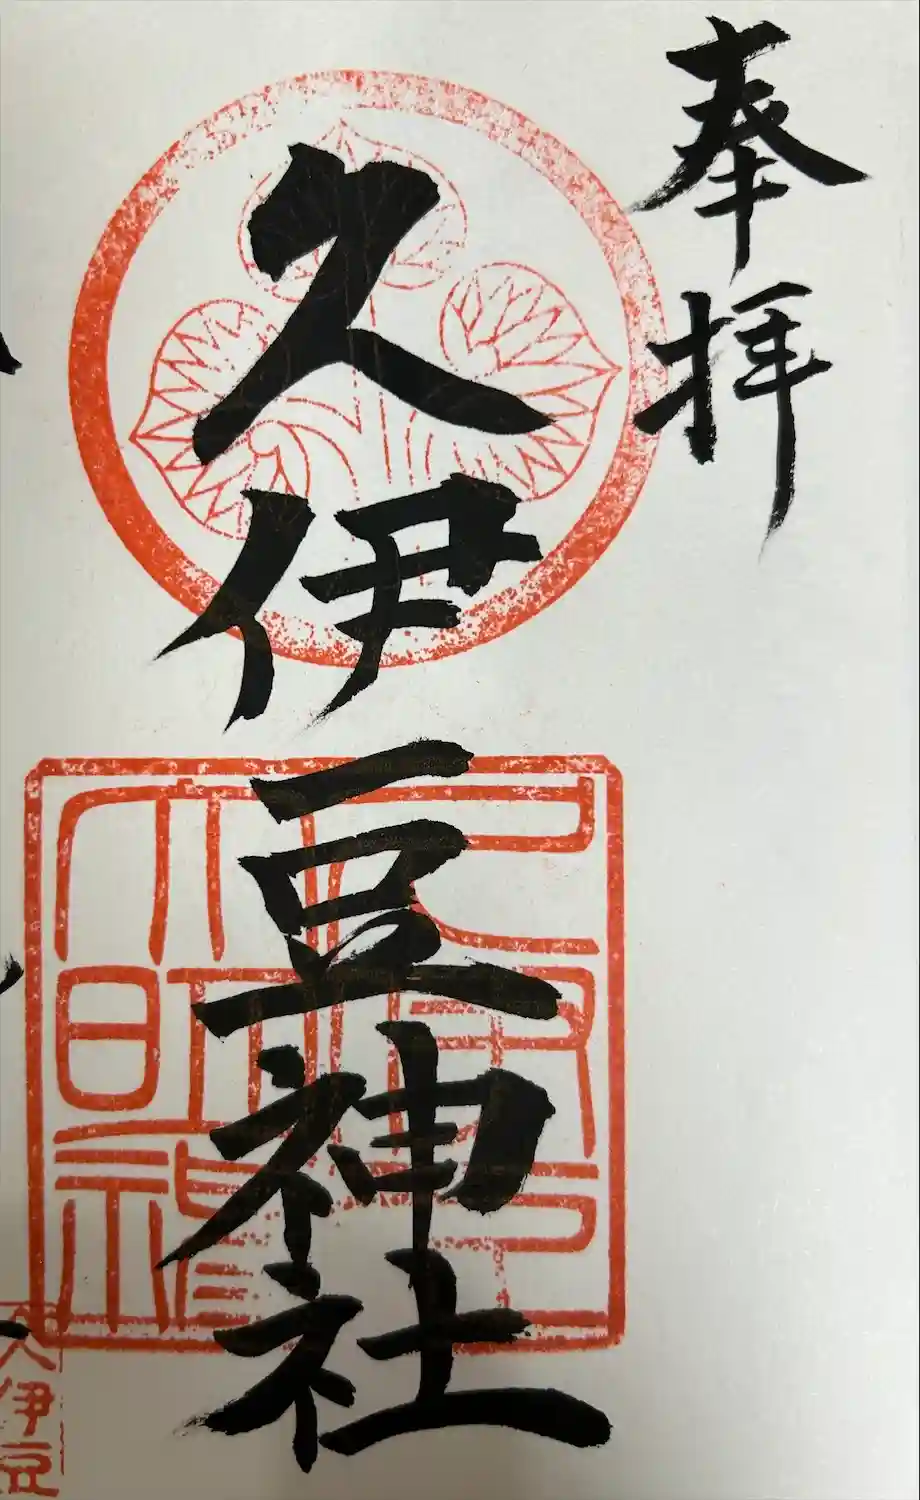 奉拝
久伊豆神社
久伊豆